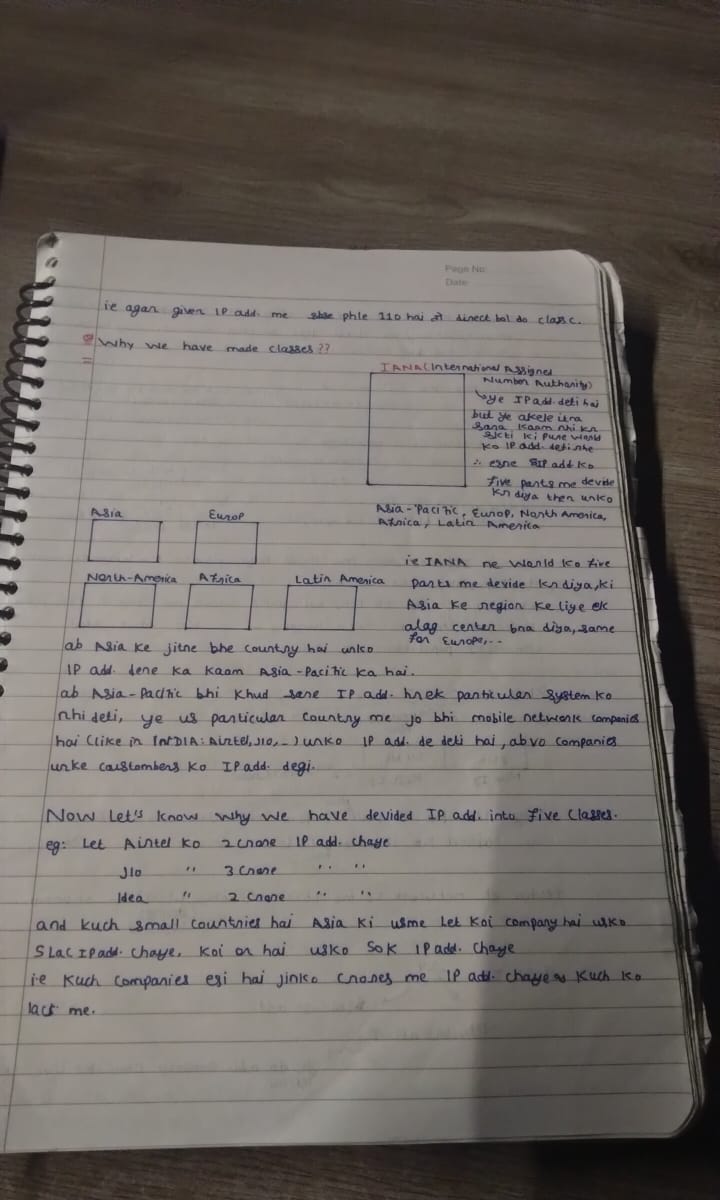 Page No:
Date:
ie agar given IP add. me sbse phle 110 hai तो direct bol do class c.
Q Why we have made classes??
IANA (International Assigned
Number Authority)
↳ye IP add. deti hai
but ye akele itna
sara kaam nhi kr
skti ki pure world
ko IP add. deti rhe
∴ esne IP add ko
five parts me devide
kr diya then unko
Asia-Pacific, Europ, North America,
Africa, Latin America
Asia Europ
North-America Africa Latin America
ie IANA ne world ko five
parts me devide kr diya, ki
Asia ke region ke liye ek
alag center bna diya, same
for Europe,..
ab Asia ke jitne bhe country hai unko
IP add. dene ka kaam Asia-Pacific ka hai.
ab Asia-Pacific bhi khud se IP add. hrek particular system ko
nhi deti, ye us particular country me jo bhi mobile network companies
hai (like in INDIA: Airtel, JIO, -) unko IP add. de deti hai, ab vo companies
unke caustombers ko IP add. degi.
Now Let's know why we have devided IP add. into five classes.
eg: Let Airtel ko 2 crore IP add. chaye
JIO " 3 crore " "
Idea " 2 crore " "
and kuch small countries hai Asia ki usme Let koi company hai usko
5 Lac IP add. chaye, koi or hai usko 50K IP add. chaye
i.e kuch companies esi hai jinko crores me IP add. chaye & kuch ko
lacs me.